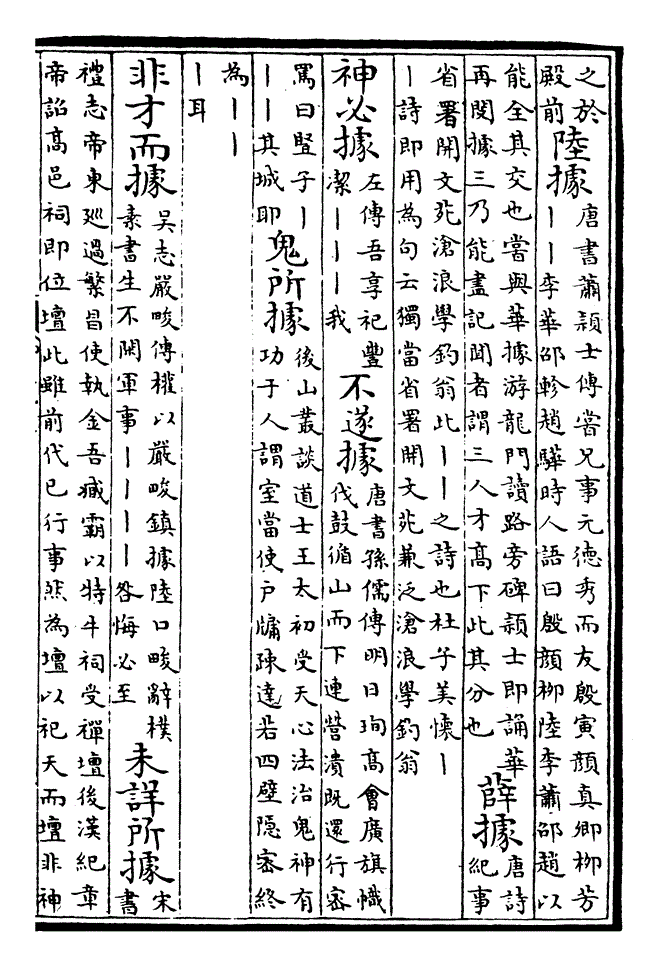 之於
殿前
陸據
唐書蕭頴士傳嘗兄事元德秀而友殷寅顔真卿栁芳
丨丨李華邵軫趙驊時人語曰殷顔栁陸李蕭邵趙以
能全其交也嘗與華據游龍門讀路旁碑頴士即誦華
再閱據三乃能盡記聞者謂三人才髙下此其分也
薛據
唐詩
紀事
省署開文苑滄浪學釣翁此丨丨之詩也杜子美懷丨
丨詩即用為句云獨當省署開文苑兼泛滄浪學釣翁
神必據
左傳吾享祀豐
潔丨丨丨我
不遂據
唐書孫儒傳明日珣髙會廣旗幟
伐鼓循山而下連營潰既還行宻
罵曰豎子丨
丨丨其城耶
鬼所據
後山叢談道士王太初受天心法治鬼神有
功于人謂室當使户牗疎達若四壁隠宻終
為丨丨
丨耳
非才而據
吴志嚴畯傳權以嚴畯鎮據陸口畯辭樸
素書生不閑軍事丨丨丨丨咎悔必至
未詳所據
宋
書
禮志帝東廵過繁昌使執金吾臧霸以特牛祠受禪壇後漢紀章
帝詔髙邑祠即位壇此雖前代已行事然為壇以祀天而壇非神